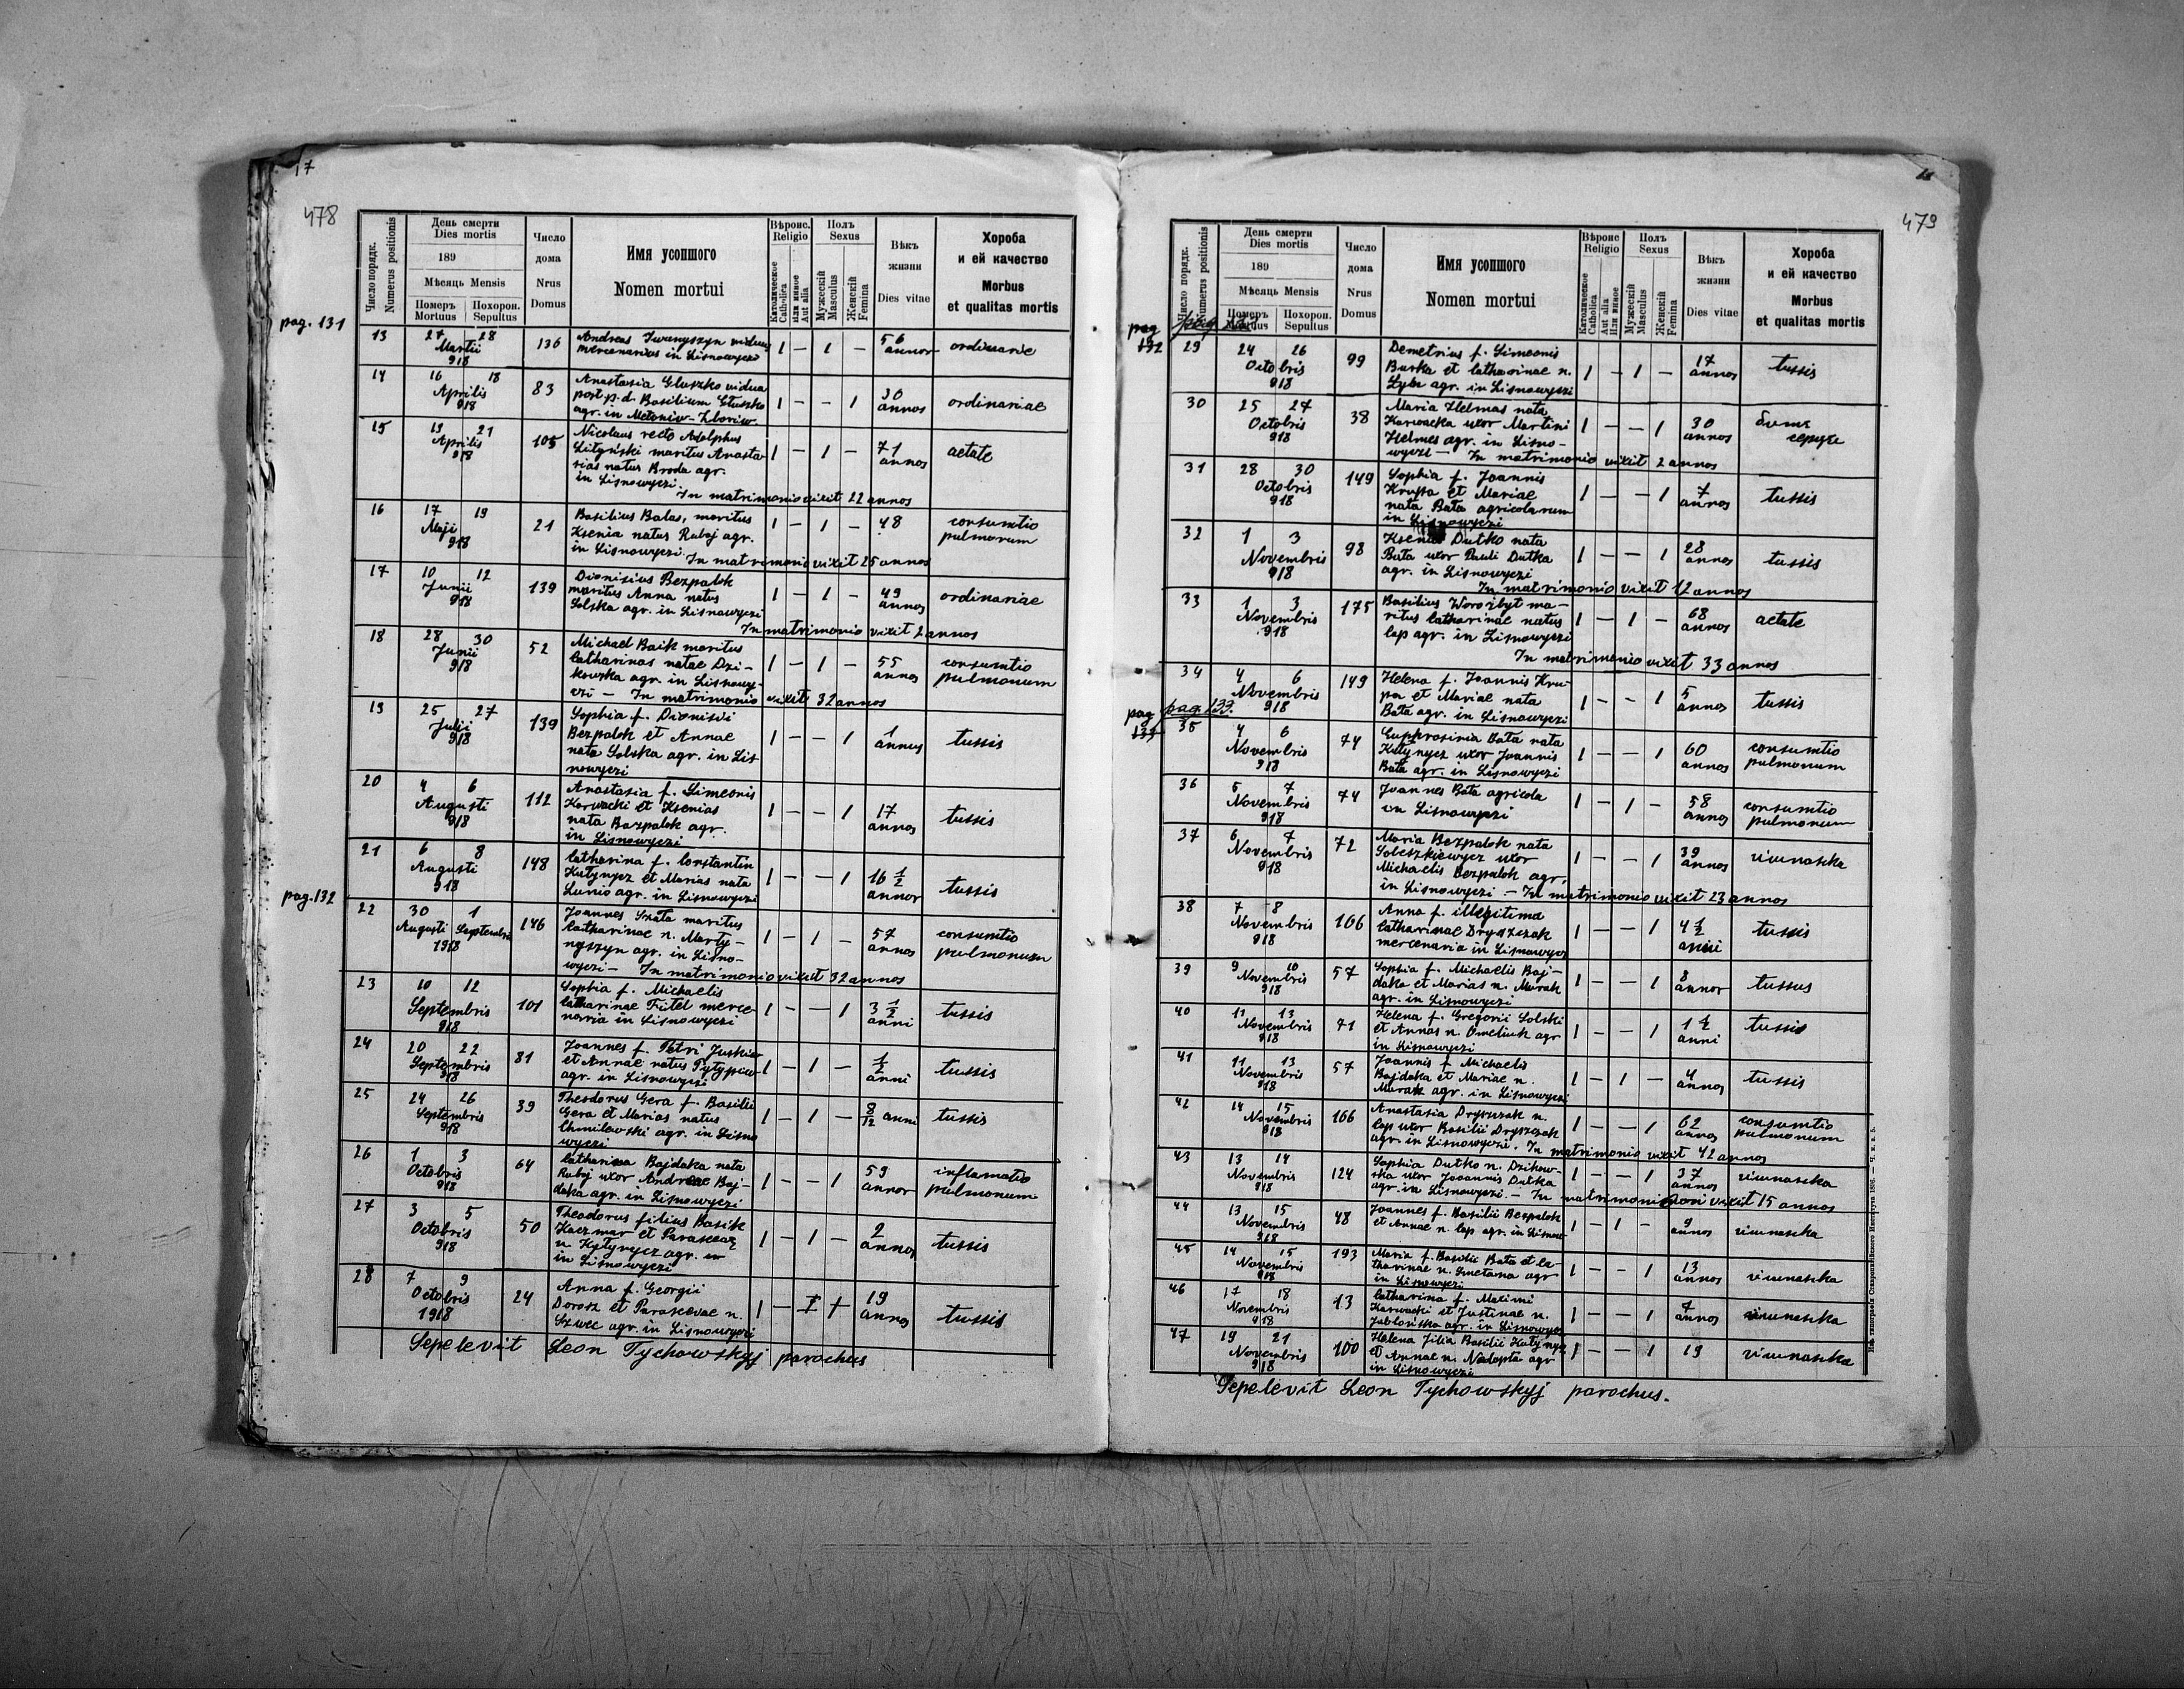 17
478
Число порядк.
Numerus positionis
День смерти
Dies mortis
189
Мѣсяць Mensis
Померъ Mortuus
Похорон. Sepultus
Число дома
Nrus Domus
Имя усопшого
Nomen mortui
Вѣроис. Religio
Католическое Catholica
Или иное Aut alia
Полъ Sexus
Мужескій Masculus
Женскій Femina
Вѣкъ жизни
Dies vitae
Хороба и ей качество
Morbus et qualitas mortis
pag. 131
13 27 28 Martii 918 136 Andreas Iwanyszyn viduus
mercenarius in Lisnowyczi 1 — 1 — 56 annor ordinarie
14 16 18 Aprilis 918 83 Anastasia Gluszko vidua
post p. d. Basilium Gluszko
agr. in Meteniw-Zboriw. 1 — — 1 30 annos ordinariae
15 19 21 Aprilis 918 105 Nicolaus recto Adolphus
Lityński maritus Anasta-
sias natus Broda agr.
in Lisnowyczi. 1 — 1 — 71 annos aetate
In matrimonio vixit 22 annos
16 17 19 Maji 918 21 Basilius Balas, maritus
Ksenia natus Rubaj agr.
in Lisnowyczi. 1 — 1 — 48 consumtio pulmonum
In matrimonio vixit 25 annos
17 10 12 Junii 918 139 Dionisius Bezpalok
maritus Anna natus
Solska agr. in Lisnowyczi 1 — 1 — 49 annos ordinariae
In matrimonio vixit 2 annos
18 28 30 Junii 918 52 Michael Baik maritus
Catharinas natae Dzi-
kowska agr. in Lisnowy-
czi — In matrimonio vixit 32 annos 1 — 1 — 55 annos consumtio pulmonum
19 25 27 Julii 918 139 Sophia f. Dionisii
Bezpalok et Annae
nata Solska agr. in Lis
nowyczi 1 — — 1 1 annus tussis
20 4 6 Augusti 918 112 Anastasia f. Simeonis
Karwacki et Ksenias
nata Bezpalok agr.
in Lisnowyczi 1 — — 1 17 annos tussis
21 6 8 Augusti 918 148 Catharina f. Constantin
Kutynycz et Marias nata
Lunio agr. in Lisnowyczi 1 — — 1 16 ½ annor tussis
pag. 132
22 30 1 Augusti Septembris 1918 146 Joannes Szata maritus
Catharinae n. Marty-
nyszyn agr. in Lisno-
wyczi — In matrimonio vixit 32 annos 1 — 1 — 57 annos consumtio pulmonum
23 10 12 Septembris 918 101 Sophia f. Michaelis
Catharinae Fitel merce-
naria in Lisnowyczi 1 — — 1 3 ½ anni tussis
24 20 22 Septembris 918 81 Joannes f. Petri Juskiw
et Annae natus Pytypiw
agr. in Lisnowyczi 1 — 1 — ½ anni tussis
25 24 26 Septembris 918 39 Theodorus Gera f. Basilii
Gera et Marias natus
Chmilowski agr. in Lisno
wyczi 1 — 1 — 8/12 anni tussis
26 1 3 Octobris 918 64 Catharina Bajdaka nata
Rubaj uxor Andreae Baj-
daka agr. in Lisnowyczi 1 — — 1 59 annor inflamatio pulmonum
27 3 5 Octobris 918 50 Theodorus filius Basik
Kaczmar et Parasceae
n. Kytynycz agr. in
in Lisnowyczi 1 — 1 — 2 annos tussis
28 7 9 Octobris 1918 24 Anna f. Georgii
Dorosz et Parascevae n.
Szwec agr. in Lisnowyczi 1 — 19 annos tussis
Sepelevit Leon Tychowskyj parochus
479
Число порядк.
Numerus positionis
День смерти
Dies mortis
189
Мѣсяць Mensis
Померъ Mortuus
Похорон. Sepultus
Число дома
Nrus Domus
Имя усопшого
Nomen mortui
Вѣроис Religio
Католическое Catholica
Aut alia Или иное
Полъ Sexus
Мужескій Masculus
Женскій Femina
Вѣкъ жизни
Dies vitae
Хороба и ей качество
Morbus et qualitas mortis
pag 132
29 24 26 Octobris 918 99 Demetrius f. Simeonis
Burka et Catharinae n.
Lyba agr. in Lisnowyczi 1 — 1 — 17 annos tussis
30 25 27 Octobris 918 38 Maria Helmas nata
Karwacka uxor Martini
Helmes agr. in Lisno-
wyczi — In matrimonio vixit 2 annos 1 — — 1 30 annos
31 28 30 Octobris 918 149 Sophia f. Joannis
Krupa et Mariae
nata Bata agricolarum
in Lisnowyczi 1 — — 1 7 annos tussis
32 1 3 Novembris 918 98 Ksenia Dutko nata
Bata uxor Pauli Dutka
agr. in Lisnowyczi 1 — — 1 28 annos tussis
In matrimonio vixit 12 annos
33 1 3 Novembris 918 175 Basilius Worożbyt ma-
ritus Catharinae natus
Cap agr. in Lisnowyczi 1 — 1 — 68 annos aetate
In matrimonio vixit 33 annos
34 4 6 Novembris 918 149 Helena f. Joannis Kru-
pa et Mariae nata
Bata agr. in Lisnowyczi 1 — — 1 5 annos tussis
pag pag. 133
35 4 6 Novembris 918 74 Euphrosinia Bata nata
Kytynycz uxor Joannis
Bata agr. in Lisnowyczi 1 — — 1 60 annos consumtio pulmonum
36 5 7 Novembris 918 74 Joannes Bata agricola
in Lisnowyczi 1 — 1 — 58 annos consumtio pulmonum
37 6 7 Novembris 918 72 Maria Bezpalok nata
Soleszkiewycz uxor
Michaelis Bezpalok agr.
in Lisnowyczi — In matrimonio vixit 23 annos 1 — — 1 39 annos
38 7 8 Novembris 918 106 Anna f. illegitima
Catharinae Dryszczak
mercenaria in Lisnowycz 1 — — 1 4 ½ anni tussis
39 9 10 Novembris 918 57 Sophia f. Michaelis Baj-
daka et Marias n. Murak
agr. in Lisnowyczi 1 — — 1 8 annor tussus
40 11 13 Novembris 918 71 Helena f. Gregorii Solski
et Annas n. Omeliuk agr
in Lisnowyczi 1 — — 1 1 ½ anni tussis
41 11 13 Novembris 918 57 Joannis f. Michaelis
Bajdaka et Mariae n.
Murak agr. in Lisnowyczi 1 — 1 — 4 annos tussis
42 14 15 Novembris 918 166 Anastasia Dryszczak n.
Cap uxor Basilii Dryszczak
agr. in Lisnowyczi. In matrimonio vixit 42 annos 1 — — 1 62 annos consumtio pulmonum
43 13 14 Novembris 918 124 Sophia Dutko n. Dzikow-
ska uxor Joannis Dutka
agr. in Lisnowyczi. — In matrimonio vixit 15 annos 1 — — 1 37 annos
44 13 15 Novembris 918 48 Joannes f. Basilii Bezpalok
et Annae n. Cap agr. in Lisnow 1 — 1 — 9 annos
45 14 15 Novembris 918 193 Maria f. Basilii Bata et Ca-
tharinae n. Smetana agr
in Lisnowyczi 1 — — 1 13 annos
46 17 18 Novembris 918 13 Catharina f. Maximi
Karwacki et Justinae n.
Jablonska agr. in Lisnowycz 1 — — 1 7 annos
47 19 21 Novembris 918 100 Helena filia Basilii Kutynyc
et Annae n. Nadopta agr
in Lisnowyczi 1 — — 1 19
Sepelevit Leon Tychowskyj parochus.